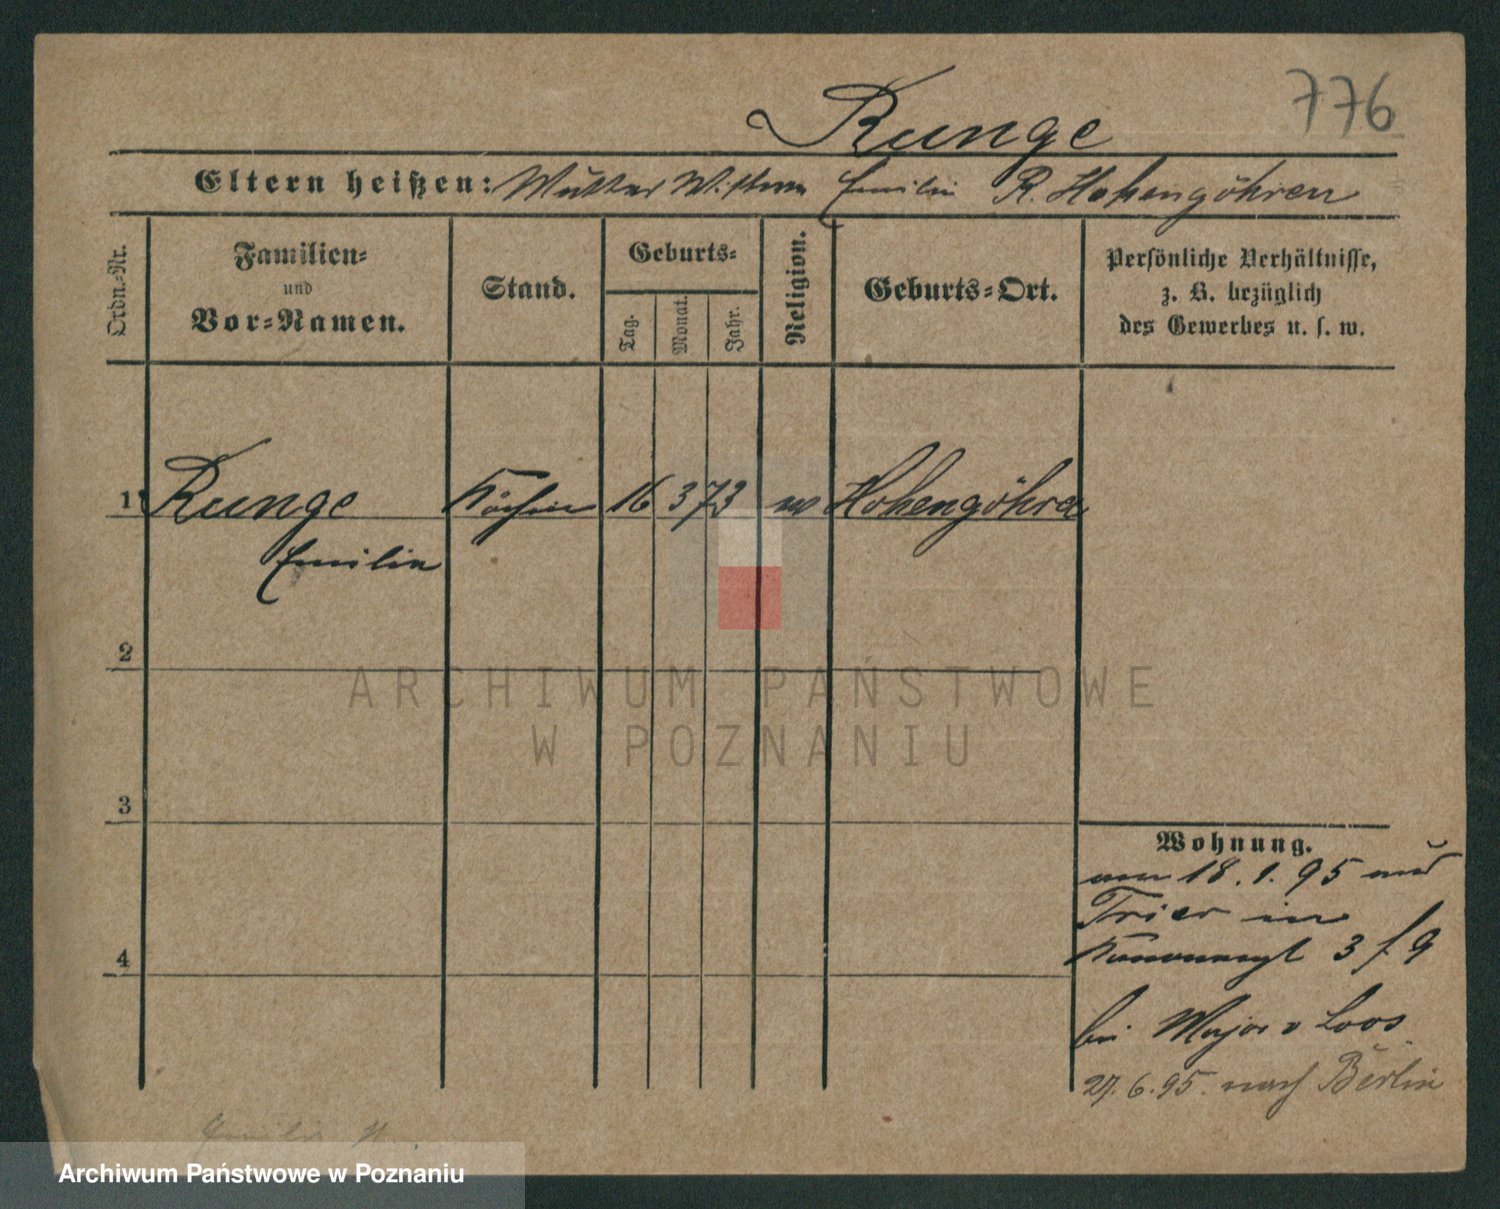 776
Runge
Eltern heißen: Mutter Wittwe Emilie R. Hohengöhren
Ordn.-Nr.
Familien-
und
Vor-Namen.
Stand.
Geburts-
Tag.
Monat.
Jahr.
Religion.
Geburts-Ort.
Persönliche Verhältnisse,
z. B. bezüglich
des Gewerbes u. s. w.
1 Runge Köchin 16 3 73 Hohengöhren
Emilie
2
3
4
Wohnung.
18. 1. 95 aus
Trier in
3 f 9
bei Major v Loos
27. 6. 95. nach Berlin
ARCHIWUM PAŃSTWOWE
W POZNANIU
Archiwum Państwowe w Poznaniu